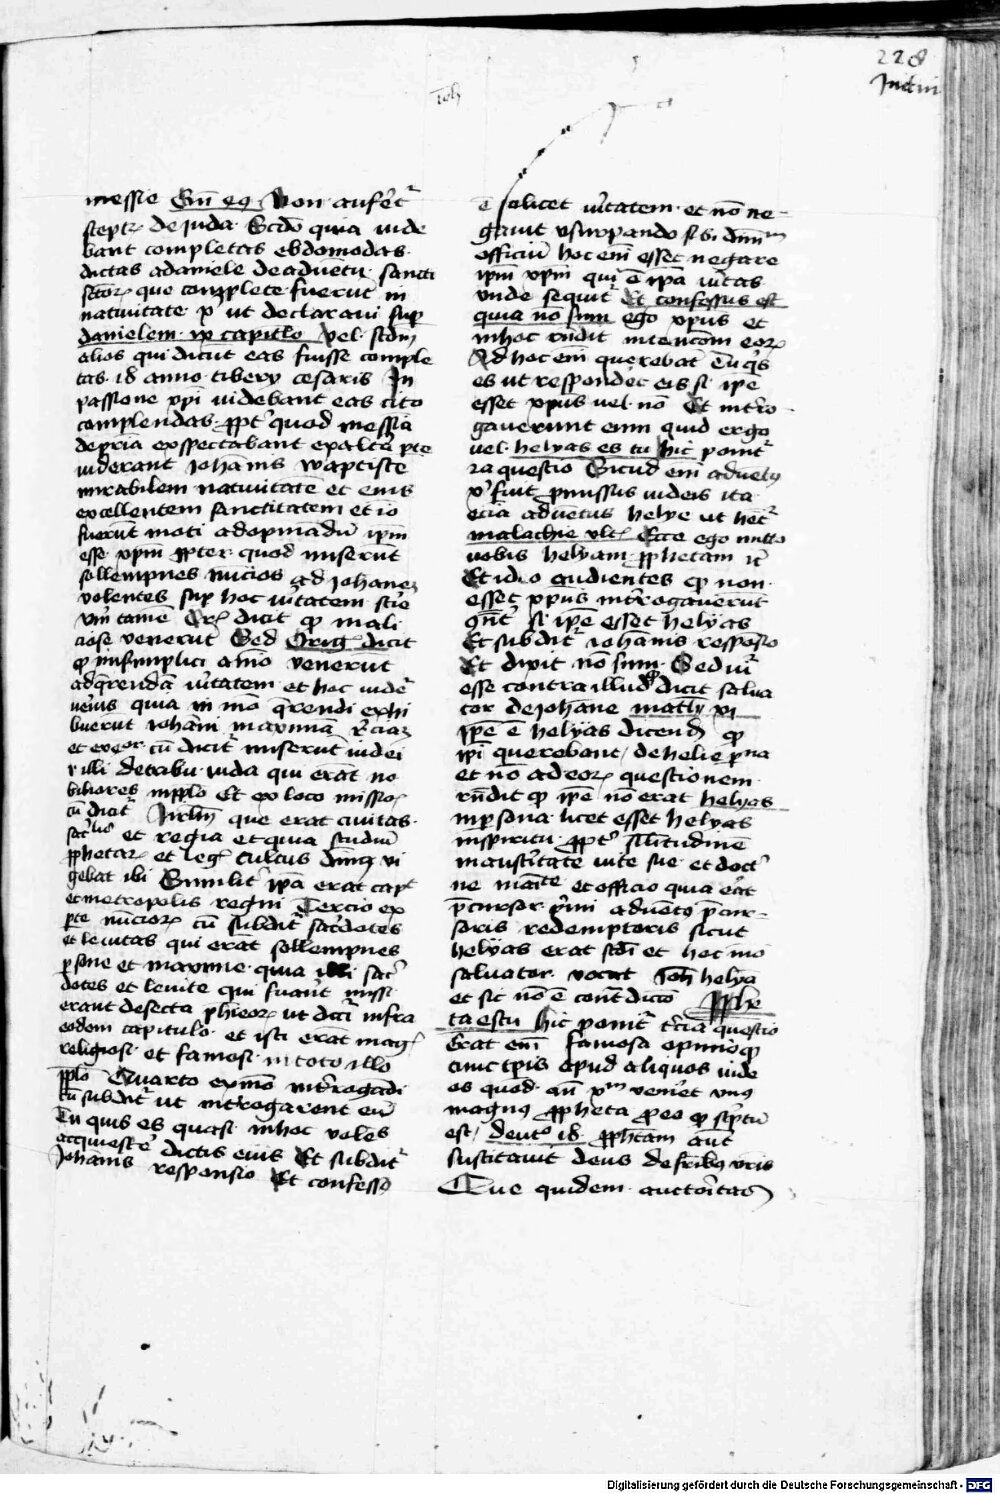 228
Joh
messie Gen̄ 49 Non aufert᷑
sceptr̄ de juda Scdo quia vide
bant completas ebdomodas
dictas a daniele de aduētu sancti
sctor̄ que complete fuerūt in
natiuitate x ut declaraui sup
danielem ix capitlo vel scdm
alios qui dicūt eas fuisse comple
tas 18 anno tibery cesaris In
passione xpi videbant eas cito
complendas ꝓpt' quod messiā
de pria exspectabant ex altera pte
viderant Johānis waptiste
mirabilem natiuitatē et eius
excellentem sanctitatem et io
fuerūt moti ad opinādū ipm
esse xpm ꝓpter quod miserūt
sollempnes nūcios ad Johanem
volentes sup hoc vitatem scire
vm̄ tamē Cr̄ dicit ꝙ mali
ciose venerūt Sed Oriḡ dicit
ꝙ in simplici aīo venerūt
ad q̄rendā vitatem et hoc vide᷑
verius quia in mō q̄rendi exhi
buerūt Johāni maximā
et cū dicit᷑ miserūt iudei
i illi de tribu iuda qui erāt no
biliores in pplo Et ex loco missio
cū dicit᷑ Jrlm̄ que erat ciuitas
et regia et quia studiū
ꝓphetar̄ et leḡ cultus vi
gebat ibi Similit᷑ ipa erat capt
et metropolis regni Tercio ex
pte nūcior̄ cū subdit᷑ sacdotes
et leuitas qui erāt sollempnes
psone et maxime quia illi sac
dotes et leuite qui fuerūt missi
erant de secta phīeor̄ ut dicit infra
eodem capitulo et isti erāt maḡ
religiosi et famosi in toto illo
pplo Quarto ex mō int'rogādi
cū subdit᷑ ut int'rogarent eū
Tu quis es quasi in hoc volēs
acquiescere dictis eius Et subdit᷑
Johānis responsio Et confess9
ē scilicet vitatem et nō ne
gauit vsurpando sibi diuīm
officiū hoc em̄ esset negare
ipm xpm qui ē ipa vitas
vnde sequit᷑ Et confessus est
quia nō sum ego xpus et
in hoc rn̄dit intencōm eor̄
Ad hoc em̄ querebāt
es ut respondec eis si ipe
esset xpus vel nō Et int'ro
gauerunt eum quid ergo
vel helyas es tu hic ponit᷑
2a questio Sicud em̄ aduetus
x fuit pmissus iudeis ita
eciā aduētus helye ut het᷑
malachie vlt Ecce ego mitto
vobis helyam ꝓphetam ic̄
Et ideo audientes ꝙ non
esset xpus int'rogauerūt
si ipe esset helyas
Et subdit᷑ iohānis responsio
Et dixit nō sum Sed vi᷑
esse contra illud ꝙ dicit salua
tor de Johane math xi
ipe ē helyas dicend ꝙ
ipi querebant de helie psona
et nō ad eor̄ questionem
rn̄dit ꝙ ipe nō erat helyas
in psona licet esset helyas
in spiritu ꝓpt' silitudinē
in austitate vite sue et doct'
ne et officio quia erāt
pcursor primi aduētus pcur
soris redemptoris sicut
helyas erat scdi et hoc mō
saluator vocat Joh helya
et sic nō ē cont'dictio ꝓphe
ta es tu hic ponit᷑ t'cia questio
Erat em̄ famosa opinio ꝙ
tunc tpis apud aliquos iude
os quod an̄ xm̄ venēt vnus
magnus ꝓpheta ꝓ eo ꝙ sc'ptū
est deut' 18 ꝓphtam aut
suscitauit deus de fribus vris
Que quidem auctoritas